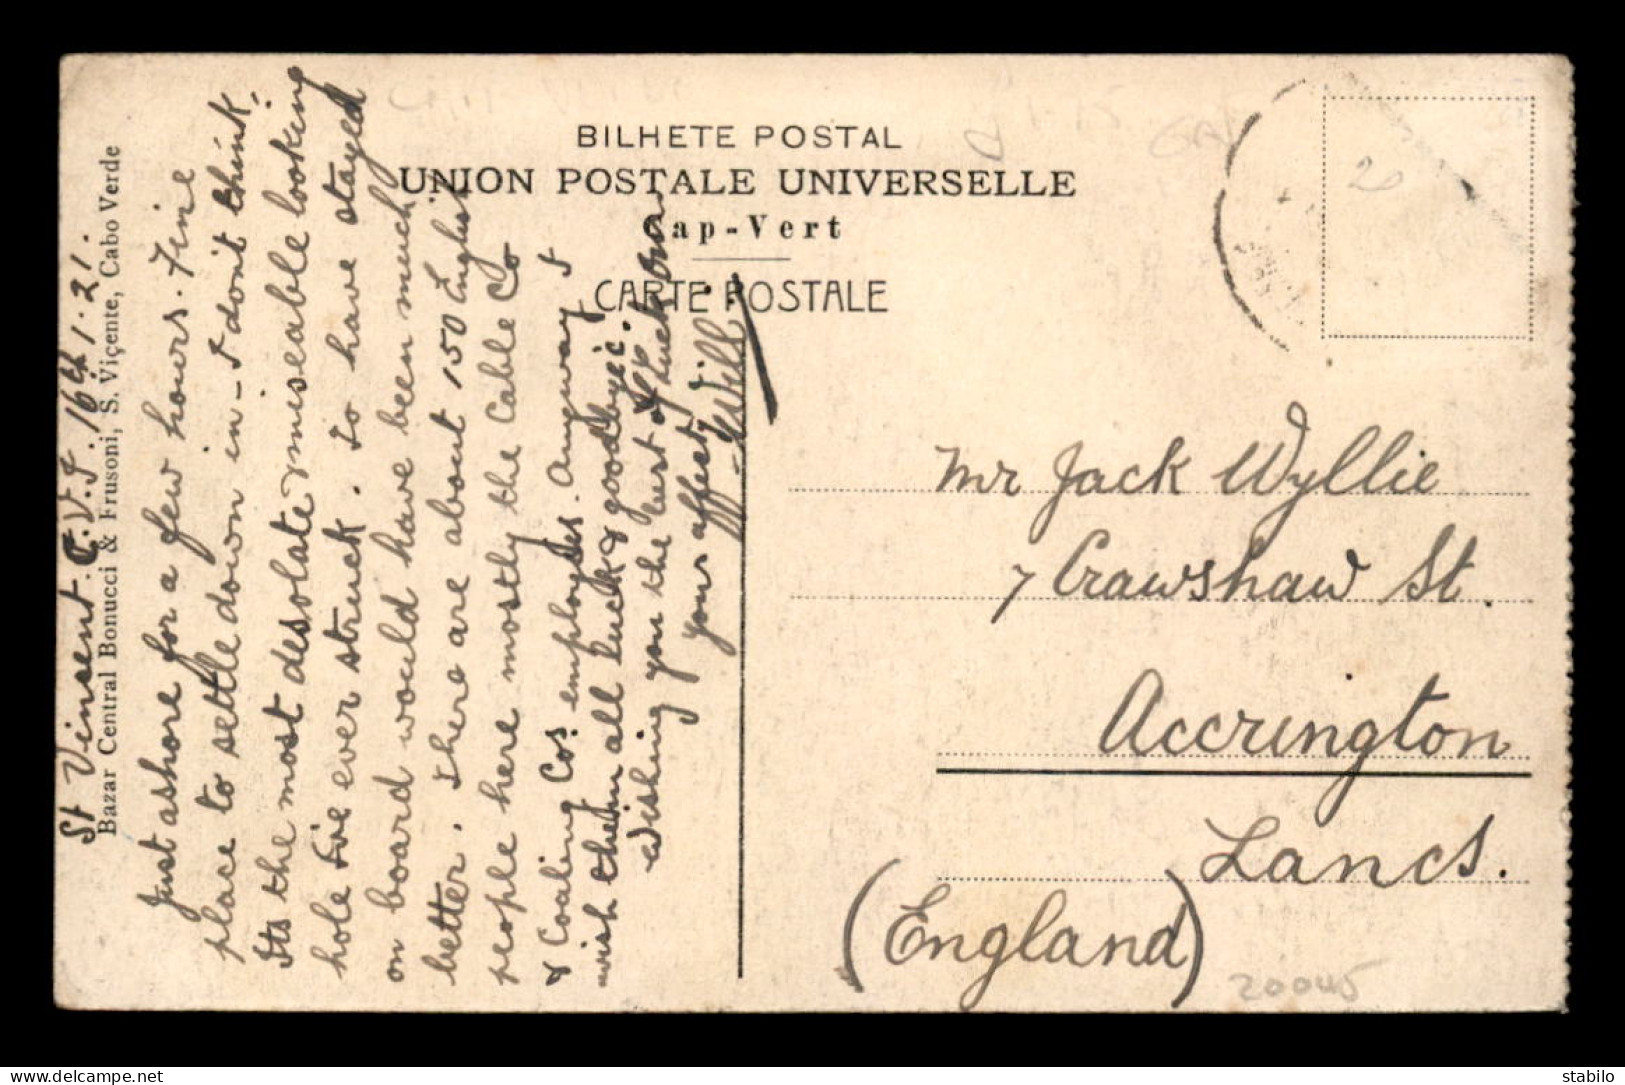 BILHETE POSTAL
UNION POSTALE UNIVERSELLE
Cap-Vert
CARTE POSTALE
Bazar Central Bonucci & Frusoni, S. Viçente, Cabo Verde
St Vincent. C.V.I. 16th 1. 21.
Just ashore for a few hours. Fine
place to settle down in - I don't think.
Its the most desolate & miseable looking
hole I've ever struck. To have stayed
on board would have been much
better. There are about 150 English
people here mostly the Cable Co
& Coaling Cos employees. Anyway I
wish them all luck & goodbye.
Wishing you the best of luck
your affect
Will
Mr Jack Wyllie
7 Crawshaw St.
Accrington
Lancs.
(England)
20
20045
stabilo
www.delcampe.net